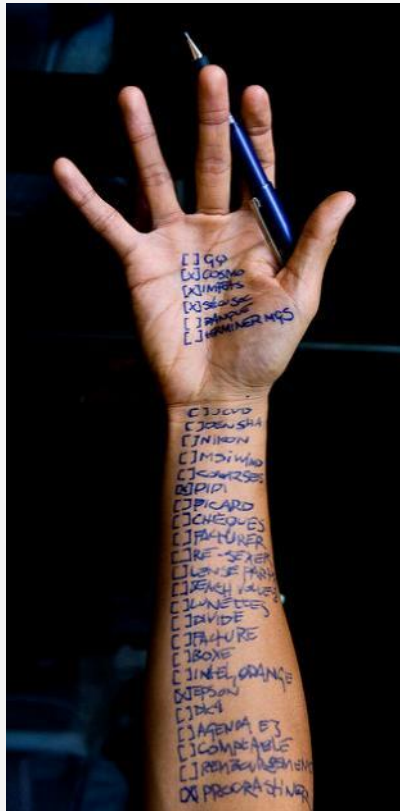 [ ] GQ
[X] COSMO
[X] IMPOTS
[X] SECUSOC
[ ] BANQUE
[ ] TERMINER MGS
[ ] JCVD
[ ] DENSHA
[ ] NIKON
[ ] MSI WIND
[ ] COURSES
[X] DIDI
[ ] PICARD
[ ] CHEQUES
[ ] FACTURER
[ ] RE-SEXER
[ ] LENSE
[ ] BEACH
[ ] LUNETTES
[ ] DIVIDE
[ ] FACTURE
[ ] BOXE
[ ] INTEL, ORANGE
[X] EPSON
[ ] DK4
[ ] AGENDA E3
[ ] COMPTABLE
[ ] REMBOURSEMENT
[X] PROCRASTINER